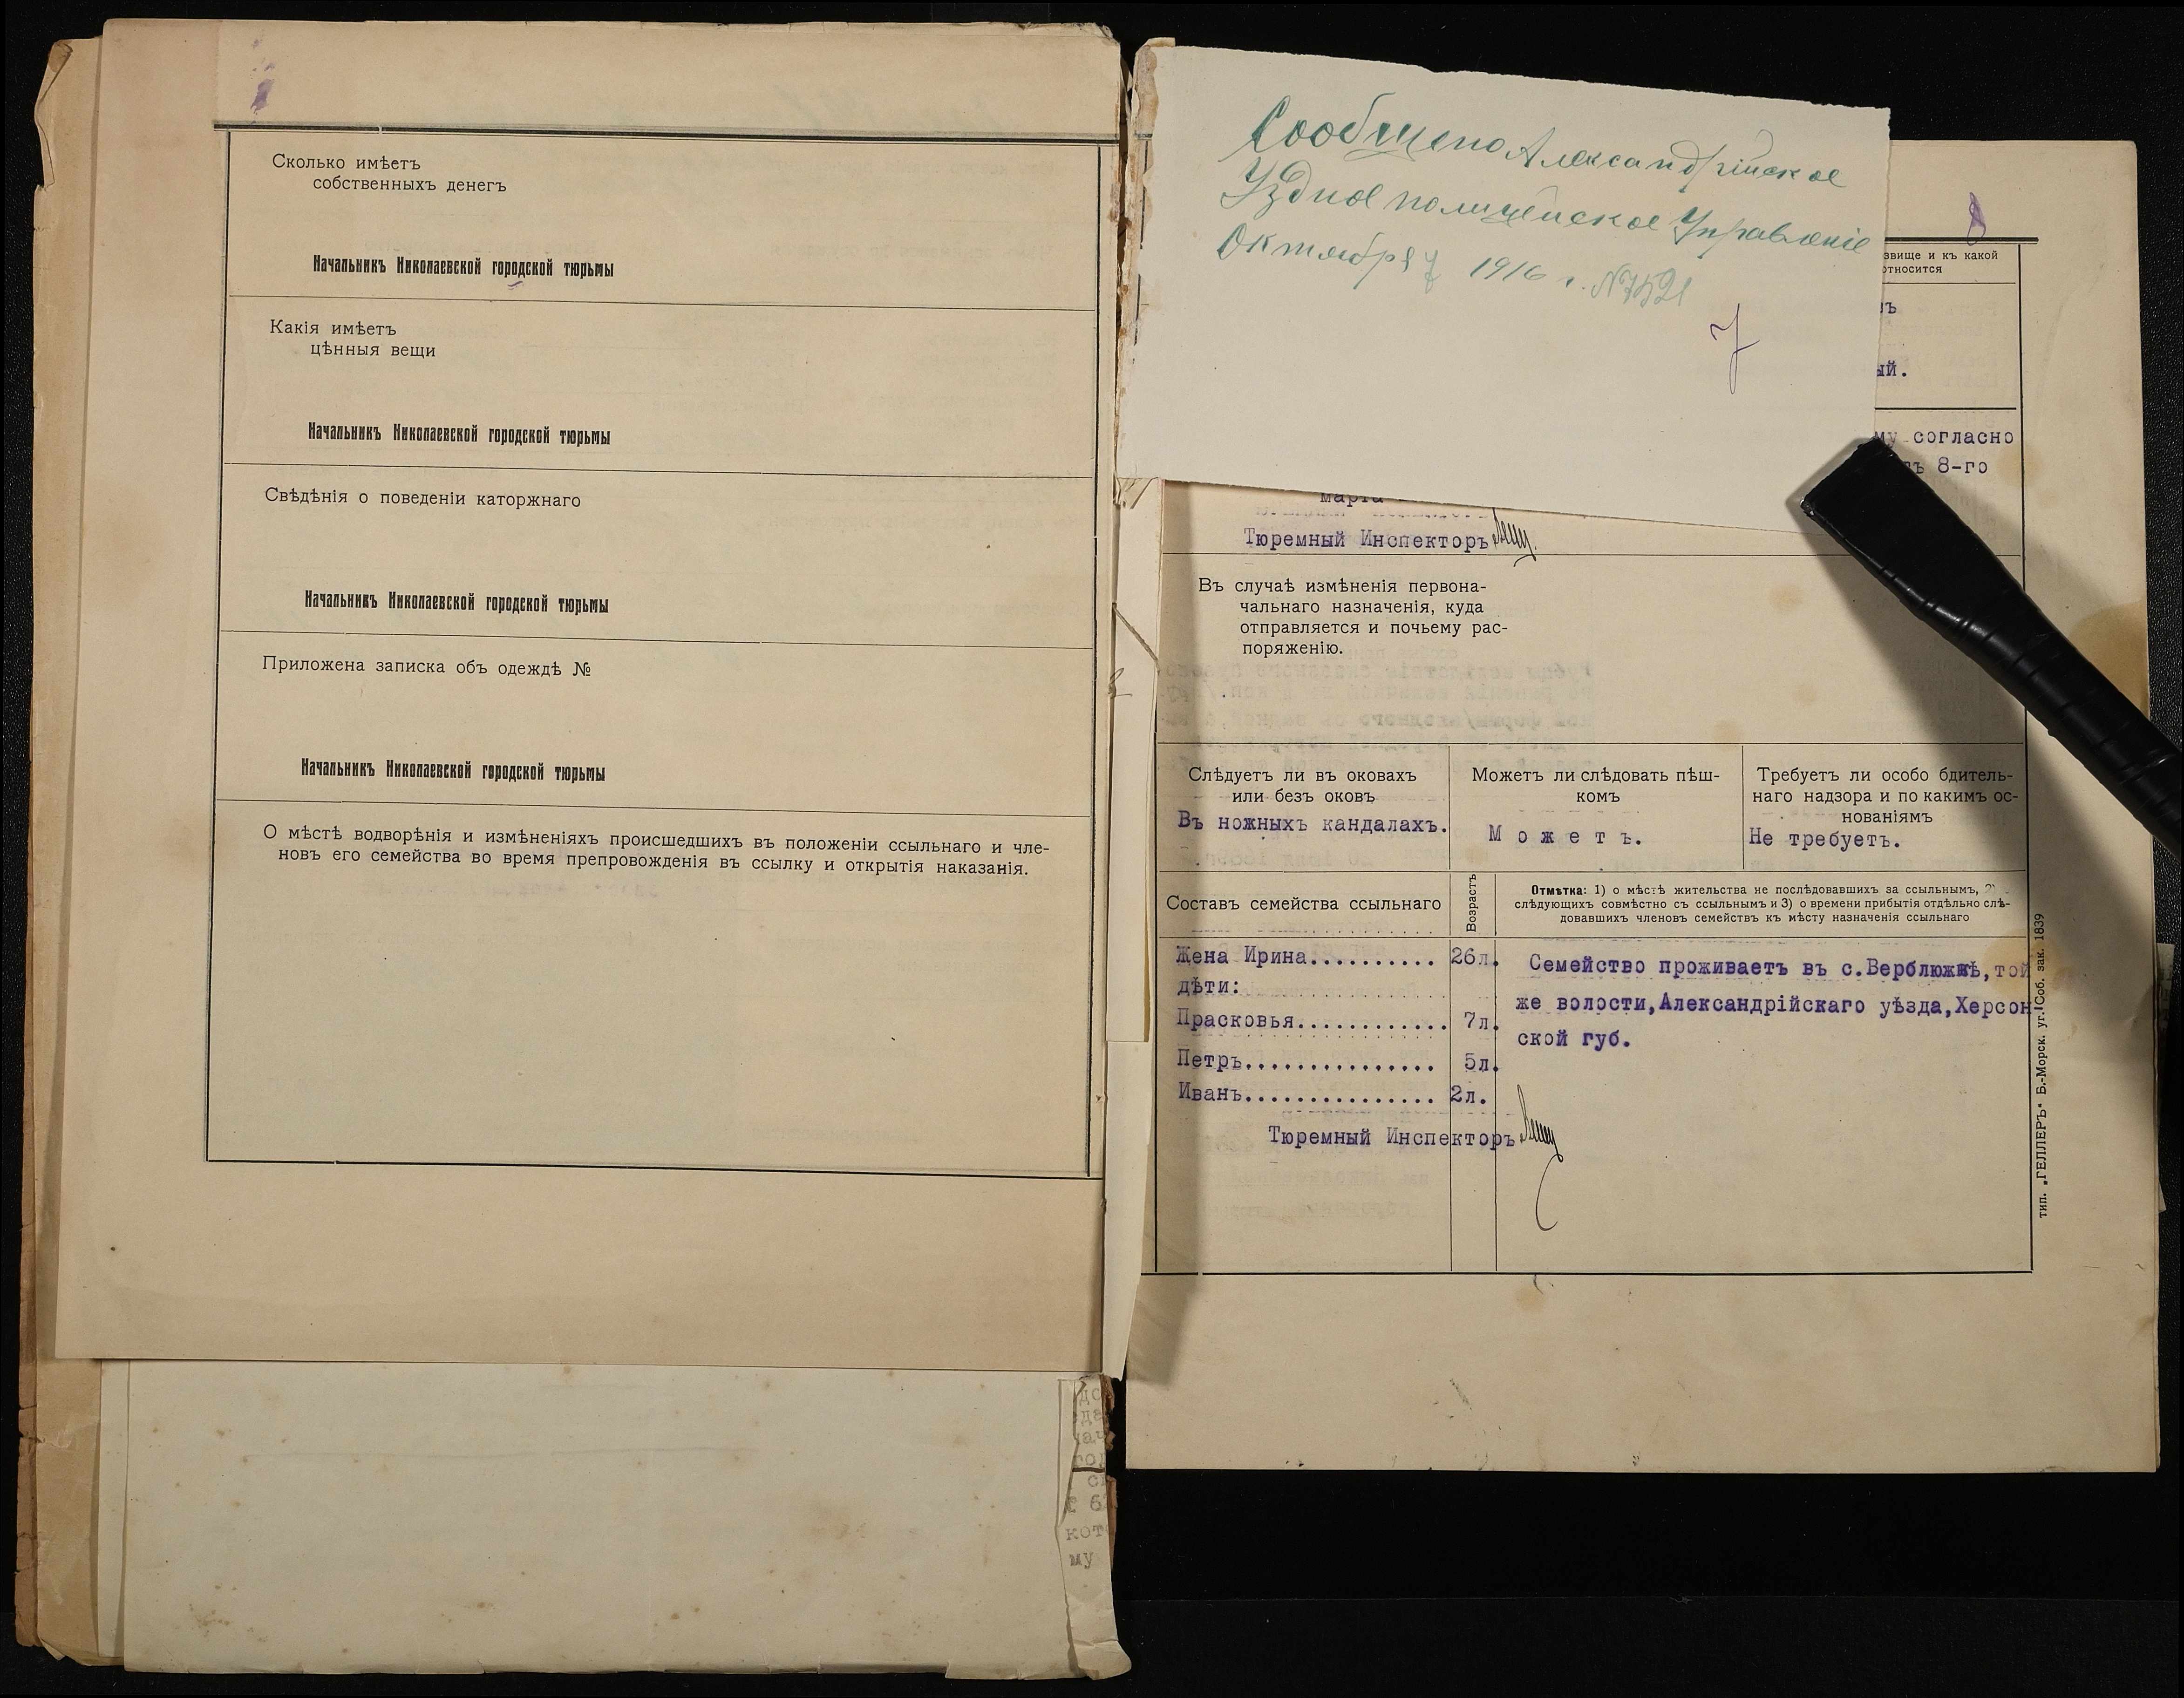 Сколько имѣетъ
собственныхъ денегъ
Начальникъ Николаевской городской тюрьмы
Какія имѣетъ
цѣнныя вещи
Начальникъ Николаевской городской тюрьмы
Свѣдѣнія о поведеніи каторжнаго
Начальникъ Николаевской городской тюрьмы
Приложена записка объ одеждѣ №
Начальникъ Николаевской городской тюрьмы
О мѣстѣ водворѣнія и измѣненіяхъ происшедшихъ въ положеніи ссыльнаго и чле-
новъ его семейства во время препровожденія въ ссылку и открытія наказанія.
Сообщено Александрійское
Уздное полицейское Управленіе
Октября 7 1916 г. №7521
7
8
звище и къ какой
относится
ъ
ый.
му согласно
ъ 8-го
марта
Тюремный Инспекторъ
Въ случаѣ измѣненія первона-
чальнаго назначенія, куда
отправляется и почьему рас-
поряженію.
Слѣдуетъ ли въ оковахъ
или безъ оковъ
Въ ножныхъ кандалахъ.
Можетъ ли слѣдовать пѣш-
комъ
М о ж е т ъ.
Требуетъ ли особо бдитель-
наго надзора и по какимъ ос-
нованіямъ
Не требуетъ.
Составъ семейства ссыльнаго
Возрастъ
Отмѣтка: 1) о мѣстѣ жительства не послѣдовавшихъ за ссыльнымъ, 2)
слѣдующихъ совмѣстно съ ссыльнымъ и 3) о времени прибытія отдѣльно слѣ-
довавшихъ членовъ семействъ къ мѣсту назначенія ссыльнаго
Жена Ирина.......... 26л.
дѣти:
Прасковья............ 7л.
Петръ............... 5л.
Иванъ............... 2л.
Семейство проживаетъ въ с.Верблюжкѣ,той
же волости,Александрійскаго уѣзда,Херсон
ской губ.
Тюремный Инспекторъ
тип. „ГЕЛЛЕРЪ" Б.-Морск. уг. Соб. зак. 1839
кото
му